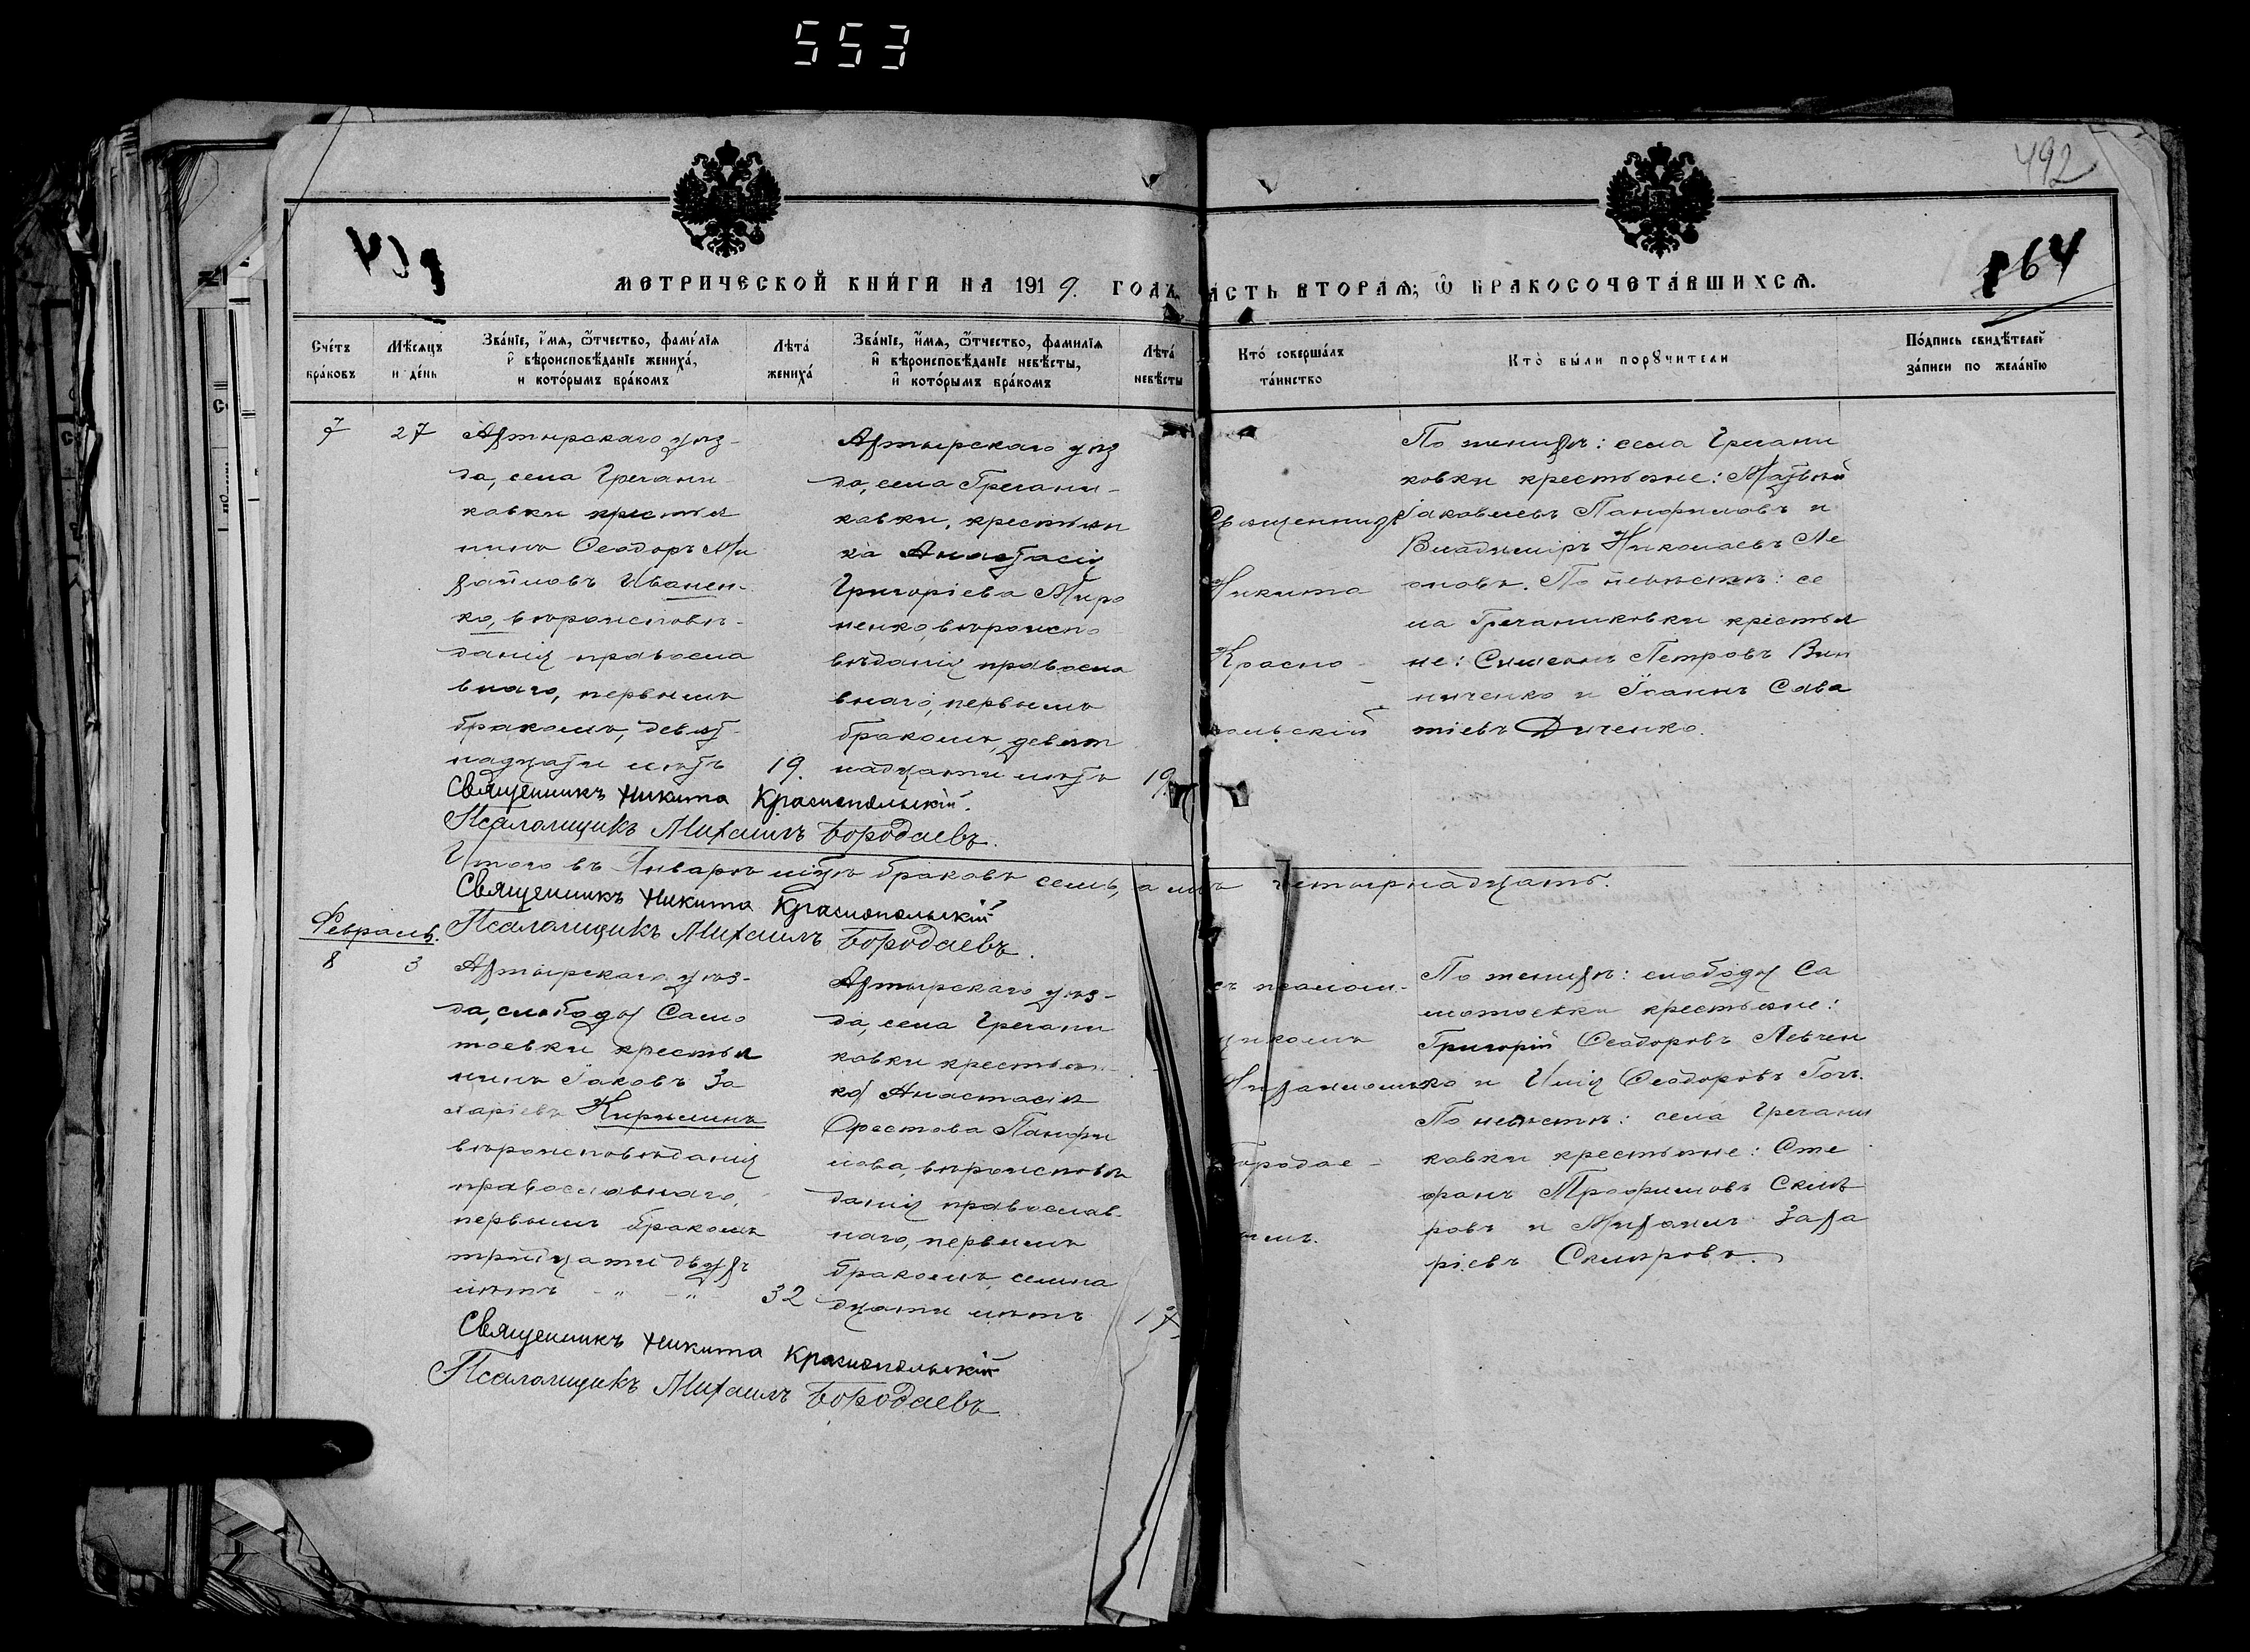 553
492
164
МЕТРИЧЕСКОЙ КНИГИ НА 1919. ГОДЪ, АСТЬ ВТОРАЯ; Ѿ БРАКОСОЧЕТАВШИХСЯ.
Счетъ браковъ
Мѣсяцъ и день
Званіе, имя, ѿтчество, фамилія и вѣроисповѣданіе жениха, и которымъ бракомъ
Лѣта жениха
Званіе, имя, ѿтчество, фамилія и вѣроисповѣданіе невѣсты, и которымъ бракомъ
Лѣта невѣсты
Кто совершалъ таинство
Кто были поручители
Подпись свидѣтелей записи по желанію
7
27
Ахтырскаго уѣз-
да, села Гречани
ковки крестья
нинъ Ѳеодоръ Ми
хаиловъ Иванен-
ко, вѣроисповѣ-
данія правосла
внаго, первымъ
бракомъ, девят-
надцати лѣтъ
19.
Ахтырскаго уѣз
да, села Гречани-
ковки, крестьян
ка Анастасія
Григоріева Миро
ненко, вѣроиспо
вѣданія правосла
внаго, первымъ
бракомъ, девят
надцати лѣтъ
19.
Священникъ
Никита
Красно-
польскій
По женихѣ: села Гречани
ковки крестьяне: Матѳей
Іаковлевъ Панфиловъ и
Владиміръ Николаевъ Ле
оновъ. По невѣстѣ: се
ла Гречаниковки крестья
не: Симеонъ Петровъ Вин
ниченко и Іоаннъ Сава
тіевъ Дяченко.
Священникъ Никита Краснопольскій.
Псаломщикъ Михаилъ Бородаевъ.
Итого въ Январѣ мцѣ браковъ семь, а лицъ четырнадцать.
Священникъ Никита Краснопольскій
Псаломщикъ Михаилъ Бородаевъ.
Февраль.
8
3
Ахтырскаго уѣз-
да, слободы Само
тоевки крестья
нинъ Іаковъ За
харіевъ Кириликъ
вѣроисповѣданія
православнаго,
первымъ бракомъ
тридцати двухъ
лѣтъ - " - "
32
Ахтырскаго уѣз-
да, села Гречани
ковки крестьян-
ка Анастасія
Орестова Панфи
лова, вѣроисповѣ
данія православ-
наго, первымъ
бракомъ, семна
дцати лѣтъ
17
съ псалом-
щикомъ
Михаиломъ
Бородае-
вымъ.
По женихѣ: слободы Са
мотоевки крестьяне:
Григорій Ѳеодоровъ Левчен
ко и Илія Ѳеодоровъ Гоч.
По невѣстѣ: села Гречани
ковки крестьяне: Сте
фанъ Трофимовъ Скля
ровъ и Михаилъ Заха
ріевъ Скляровъ.
Священникъ Никита Краснопольскій
Псаломщикъ Михаилъ Бородаевъ